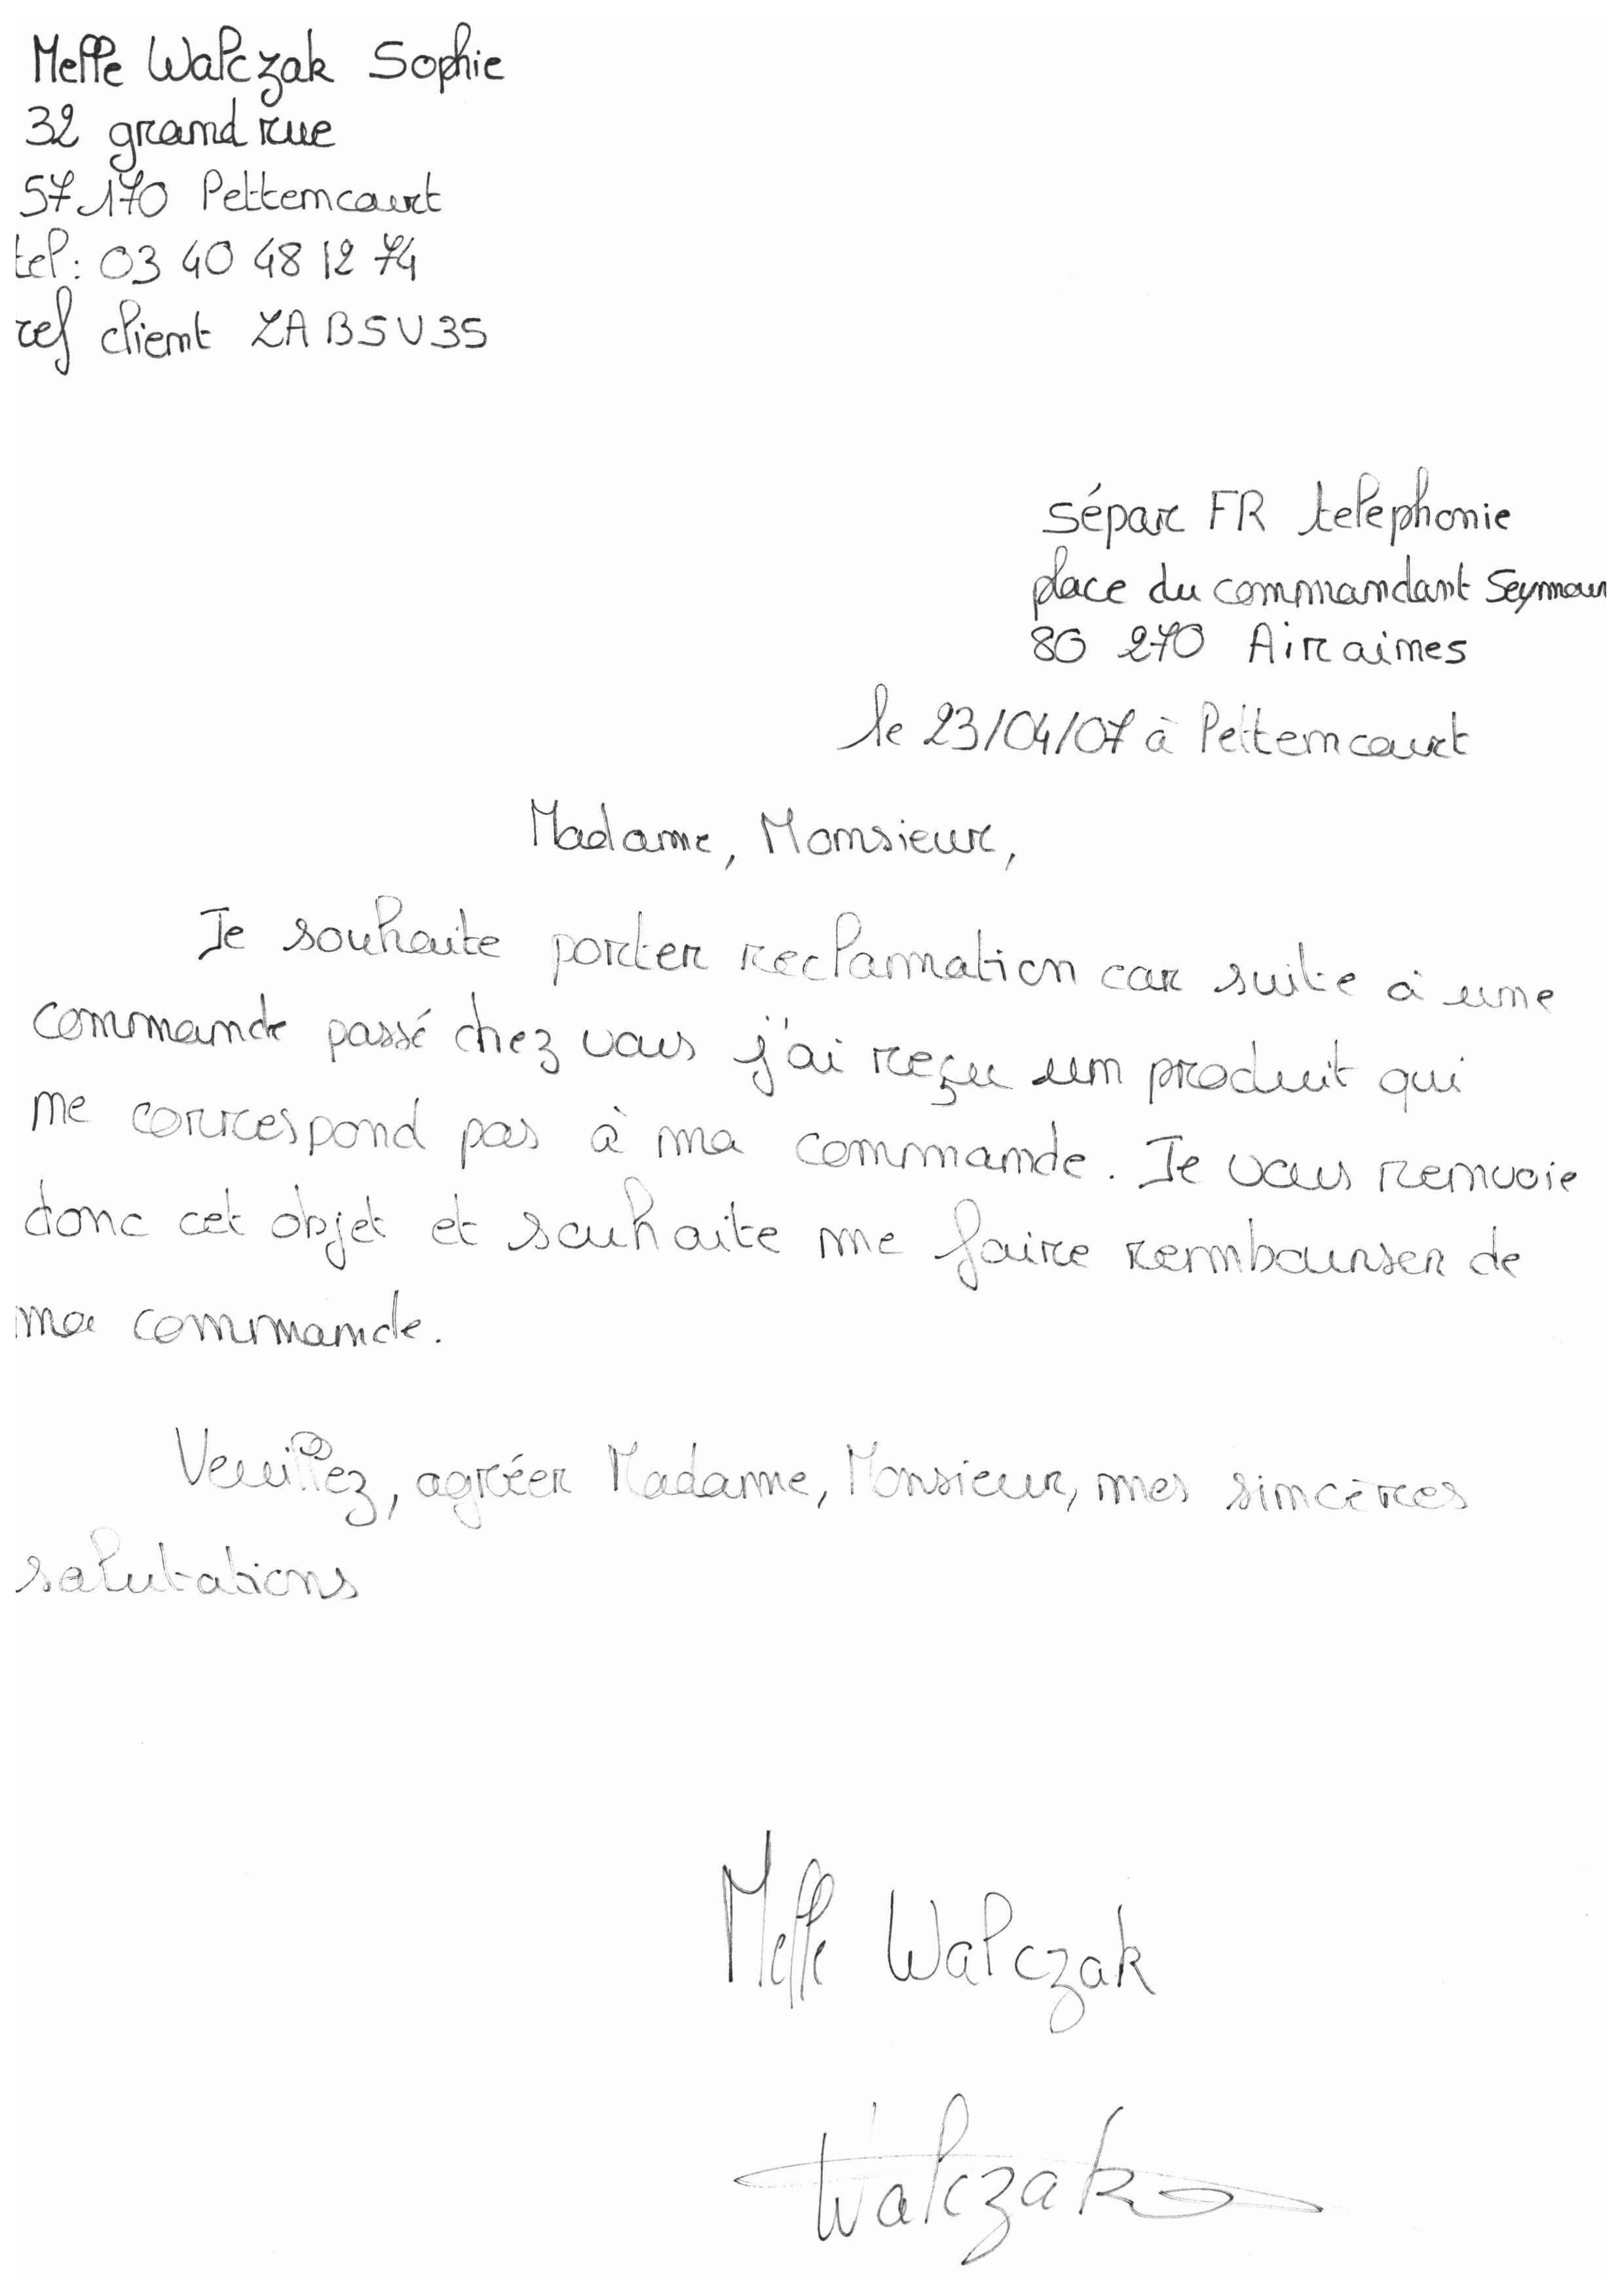 Melle Walczak Sophie
32 grand rue
57170 Pettencourt
tel: 03 40 48 12 74
ref client ZABSV35
Sépar FR telephonie
place du commandant Seymour
80 270 Airaines
le 23/04/07 à Pettencourt
Madame, Monsieur,
Je souhaite porter reclamation car suite à une
commande passé chez vous j'ai reçu un produit qui
ne correspond pas à ma commande. Je vous renvoie
donc cet objet et souhaite me faire rembourser de
ma commande.
Veuillez, agréer Madame, Monsieur, mes sincères
salutations
Melle Walczak
Walczak